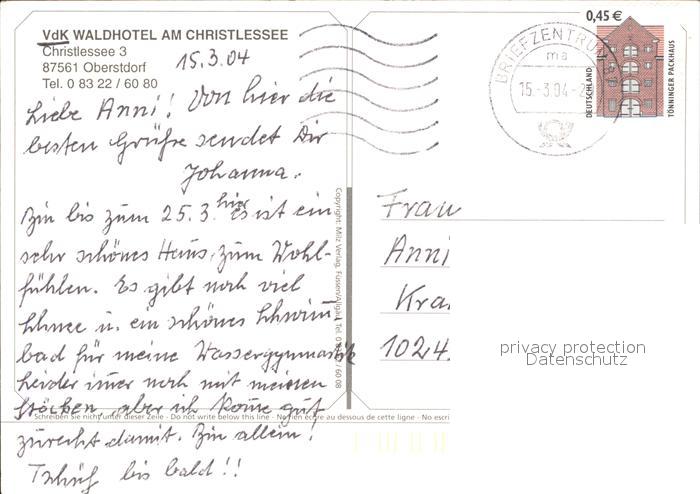 VdK WALDHOTEL AM CHRISTLESSEE
Christlessee 3
87561 Oberstdorf
Tel. 0 83 22 / 60 80
15.3.04
Liebe Anni! Von hier die
besten Grüße sendet Dir
Johanna.
Bin bis zum 25.3. hier Es ist ein
sehr schönes Haus, zum Wohl-
fühlen. Es gibt noch viel
Schnee u. ein schönes Schwimm
bad für meine Wassergymnastik
Leider imer noch mit meinen
Stöcken, aber ich kome gut
zurecht damit. Bin allein!
Tschüß bis bald!!
Copyright: Milz Verlag, Füssen/Allgäu, Tel.
Schreiben Sie nicht unter dieser Zeile - Do not write below this line - N'y rien écrire au dessous de cette ligne - No escri
BRIEFZENTRUM 87
ma
15.-3.04-2
0,45 €
DEUTSCHLAND
TÖNNINGER PACKHAUS
Frau
Anni
Kra
1024
privacy protection
Datenschutz